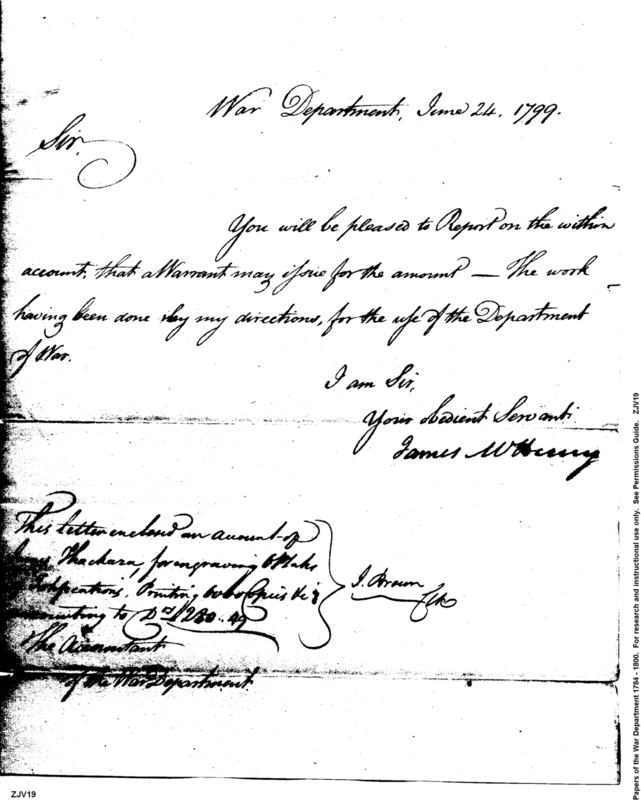 War Department, June 24. 1799.
Sir,
You will be pleased to Report on the within
account, that a Warrant may issue for the amount — The work
having been done by my directions, for the use of the Department
of War.
I am Sir,
Your obedient Servant
James McHenry
This letter enclosed an account of
Thackara, for engraving 6 Plates
Printing Copies &c
amounting to
J. Brown
Clk
The Accountant
of the War Department
ZJV19
Papers of the War Department 1784 - 1800. For research and instructional use only. See Permissions Guide. ZJV19